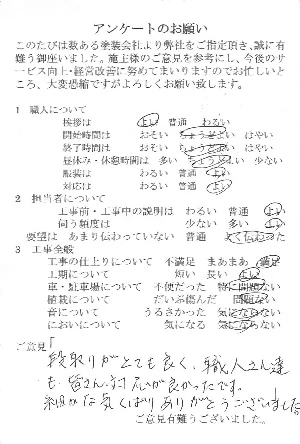 アンケートのお願い
このたびは数ある塗装会社より弊社をご指定頂き、誠に有
難う御座いました。施主様のご意見を参考にし、今後のサ
ービス向上・経営改善に努めてまいりますのでお忙しいと
ころ、大変恐縮ですがよろしくお願い致します。
1 職人について
挨拶は よい 普通 わるい
開始時間は おそい ちょうどよい はやい
終了時間は おそい ちょうどよい はやい
昼休み・休憩時間は 多い ちょうどよい 少ない
服装は わるい 普通 よい
対応は わるい 普通 よい
2 担当者について
工事前・工事中の説明は わるい 普通 よい
伺う頻度は 少ない 多い よい
要望は あまり伝わっていない 普通 よく伝わった
3 工事全般
工事の仕上りについて 不満足 まあまあ 満足
工期について 短い 長い よい
車・駐車場について 不便だった 特に問題ない
植栽について だいぶ傷んだ 問題ない
音について うるさかった 気にならない
においについて 気になる 気にならない
ご意見「
段取りがとても良く、職人さん達
も皆さん対応が良かったです。
細かな気くばりありがとうございました。
ご意見有難うございました。